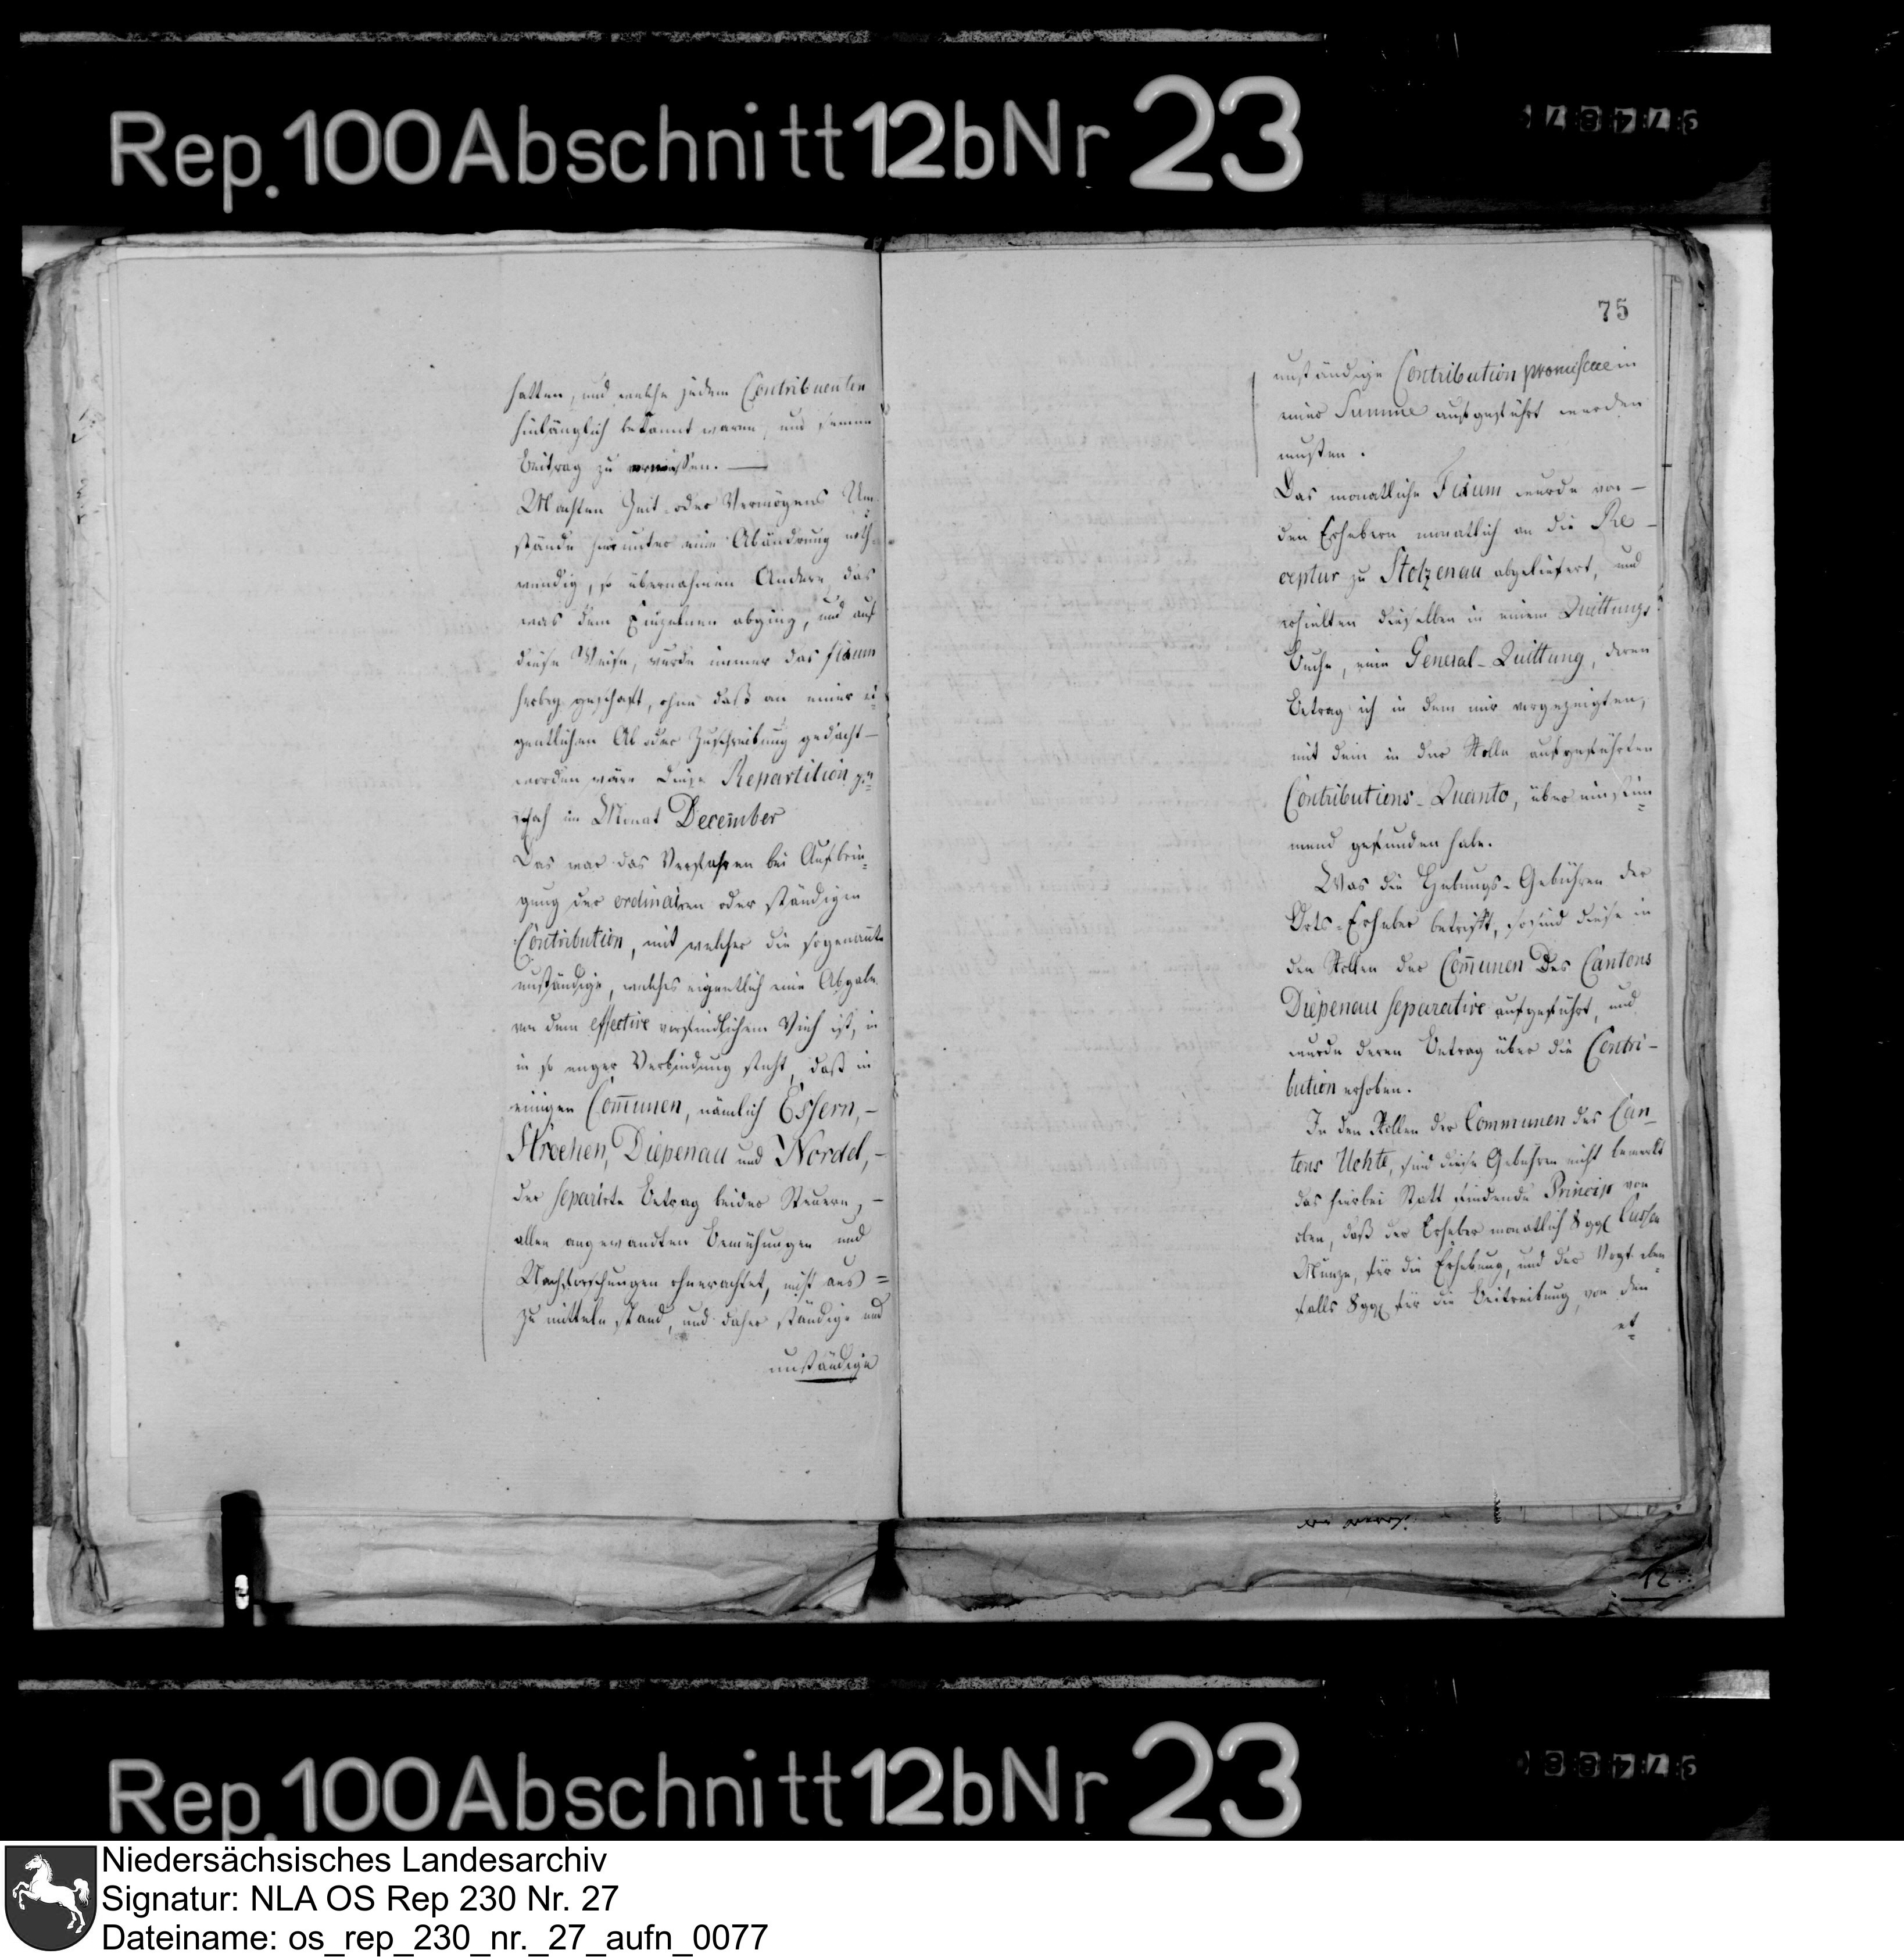 Rep. 100 Abschnitt 12b Nr 23
97487
hatten, und welche jedem Contribuenten
hinlänglich bekannt waren, um seinen
Beitrag zu ermessen. —
Machten Zeit oder Vermögens Um-
stände hierunter eine Abändrung noth-
wendig, so übernahmen Andere, das
was dem Einzelnen abging, und auf
diese Weise, wurde immer das fixum
herbey geschaft, ohne daß an einer ei-
gentlichen Ab oder Zuschreibung gedacht —
worden wäre diese Repartition ge-
schah im Monat December
Das war das Verfahren bei Aufbrin-
gung der ordinairen oder ständigen
Contribution, mit welcher die sogenannte
unständige, welches eigentlich eine Abgabe
von dem effective vorfindlichem Vieh ist, in
in so enger Verbindung steht, daß in
einigen Com̄unen, nämlich Essern, —
Stroehen, Diepenau und Nordel, —
der separirte Betrag beider Steuern, —
allen angewandten Bemühungen und
Nachforschungen ohnerachtet, nicht aus =
zu mitteln stand, und daher ständige und
unständige
75
unständige Contribution promiscue in
einer Summe aufgeführt werden
musten.
Das monatliche Fixum wurde von —
den Erhebern monatlich an die Re-
ceptur zu Stolzenau abgeliefert, und
erhielten dieselben in einem Quittungs-
Buche, eine General-Quittung, deren
Betrag ich in dem mir vorgezeigten,
mit dem in der Rolle aufgeführten
Contributions-Quanto, über einstim-
mend gefunden habe.
Was die Hebungs-Gebühren der
Orts-Erheber betrifft, so sind diese in
den Rollen der Com̄unen des Cantons
Diepenau separative aufgeführt, und
wurde deren Betrag über die Contri-
bution erhoben.
In den Rollen der Communen des Can-
tons Uchte, sind diese Gebühren nicht bemerkt
das hierbei Statt findende Princip war
eben, daß der Erheber monatlich 8 ggl Cassen
Münze, für die Erhebung, und der Vogt eben
falls 8 ggl für die Beitreibung, von den
12
Rep. 100 Abschnitt 12b Nr 23
97488
Niedersächsisches Landesarchiv
Signatur: NLA OS Rep 230 Nr. 27
Dateiname: os_rep_230_nr._27_aufn_0077